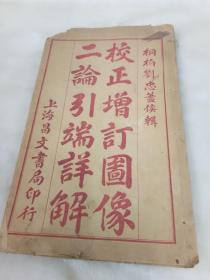 桐柏劉忠蓋俟輯
校正增訂圖像
二論引端詳解
上海昌文書局印行